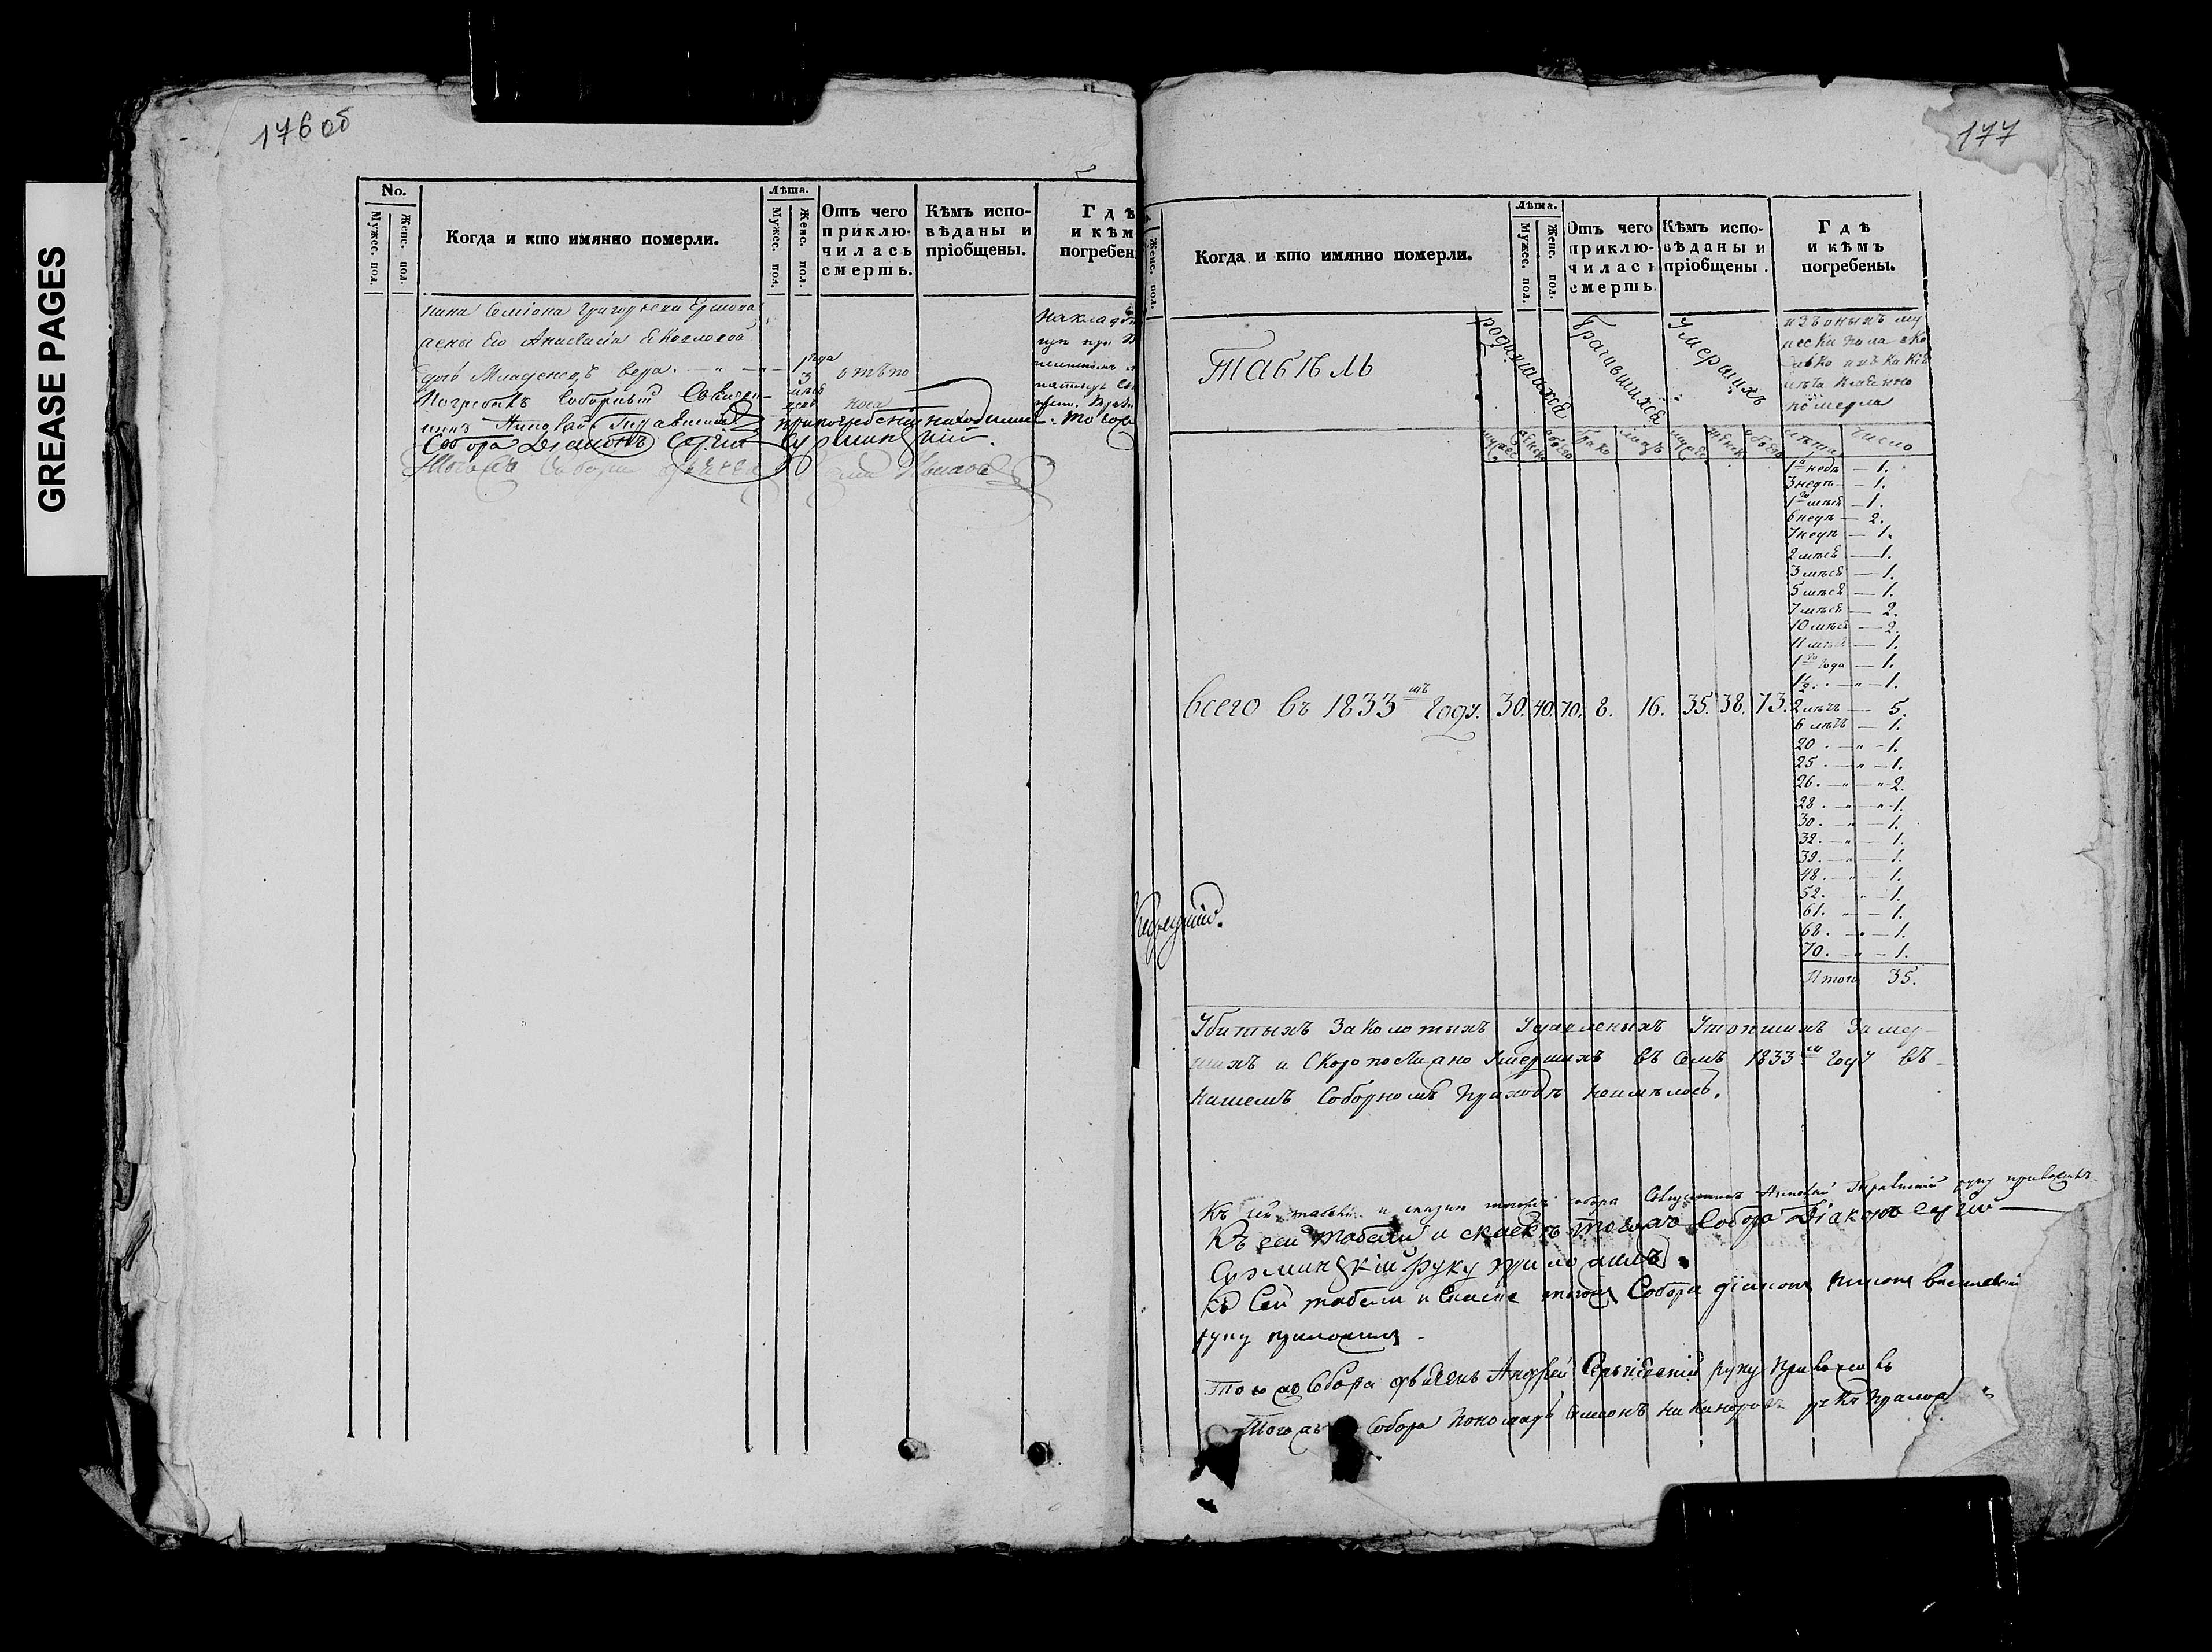 GREASE PAGES
176 об
No.
Мужес. пол.
Женс. пол.
Когда и кто имянно померли.
Лѣта.
Мужес. пол.
Женс. пол.
Отъ чего
приклю-
чилась
смерть.
Кѣмъ испо-
вѣданы и
пріобщены.
Гдѣ
и кѣм
погребен
нина Семіона Григорьева
жены Его Анастасіи
дочь Младенецъ Вера.
1 года
3
отъ по
носа
Погребалъ Соборный Священ-
никъ Николай
при погребеніи находились. того ж
Собора Діаконъ Сергій Сурминскій.
Тогожъ Собора
177
Женс. пол.
Когда и кто имянно померли.
Лѣта.
Мужес. пол.
Женс. пол.
Отъ чего
приклю-
чилась
смерть.
Кѣмъ испо-
вѣданы и
пріобщены.
Гдѣ
и кѣмъ
погребены.
Табѣль
родившихся
Бравшихся
Умершихъ
изъ оныхъ му
жеска пола ско
лько и въ какіе
лѣта имянно
померли
лѣта число
1 недѣ — 1.
3 недѣ — 1.
1 мѣся — 1.
6 недѣ — 2.
7 недѣ — 1.
2 мѣся — 1.
3 мѣся — 1.
5 мѣся — 1.
7 мѣся — 2.
10 мѣся — 2.
11 мѣся — 1.
1 года — 1.
1½ . — „ — 1.
Всего въ 1833мъ Году. 30. 40. 70. 8. 16. 35. 38. 73.
2 лѣтъ — 5.
6 лѣтъ — 1.
20 . — „ — 1.
25 . — „ — 1.
26. — „ — 2.
28 . — „ — 1.
30. — „ — 1.
32. — „ — 1.
39. — „ — 1.
48. — „ — 1.
52. — „ — 1.
61. — „ — 1.
68. — „ — 1.
70. — „ — 1.
Итого 35.
Убитыхъ Заколотыхъ Удавленыхъ Утопшихъ Замер-
шихъ и Скоропостижно Умершихъ въ семъ 1833м Году въ
нашемъ Соборномъ Приходѣ неимѣлось.
Къ сей табели и сказке тогожъ собора Священникъ Николай руку приложилъ
Къ сей табели и сказкѣ тогожъ Собора Діаконъ Сергій
Сурминскій руку приложилъ.
Къ Сей табели и Сказке тогожъ Собора діаконъ
руку приложилъ.
Того жъ Собора дьячекъ Андрей руку Приложилъ
Тогожъ Собора Пономарь Симеонъ Никаноровъ